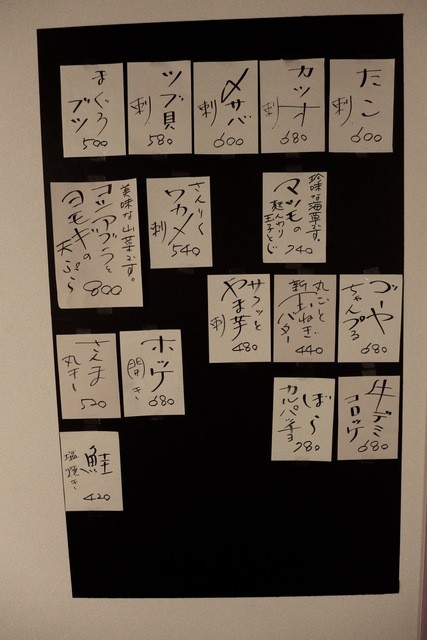 たこ
刺
600
カツオ
刺
680
〆サバ
刺
600
ツブ貝
刺
580
まぐろ
ブツ
500
珍味な海草です。
マツモの
玉子とじ
740
さんりく
ワカメ
刺
540
美味な山菜です。
コシアブラと
ヨモギの
天ぷら
800
ゴーヤ
ちゃんぷる
680
丸ごと
新玉ねぎ
バター
440
サクッと
やま芋
刺
480
ホッケ
開き
680
さんま
丸干し
520
牛デミ
コロッケ
680
ぼら
カルパッチョ
780
鮭
塩焼き
420